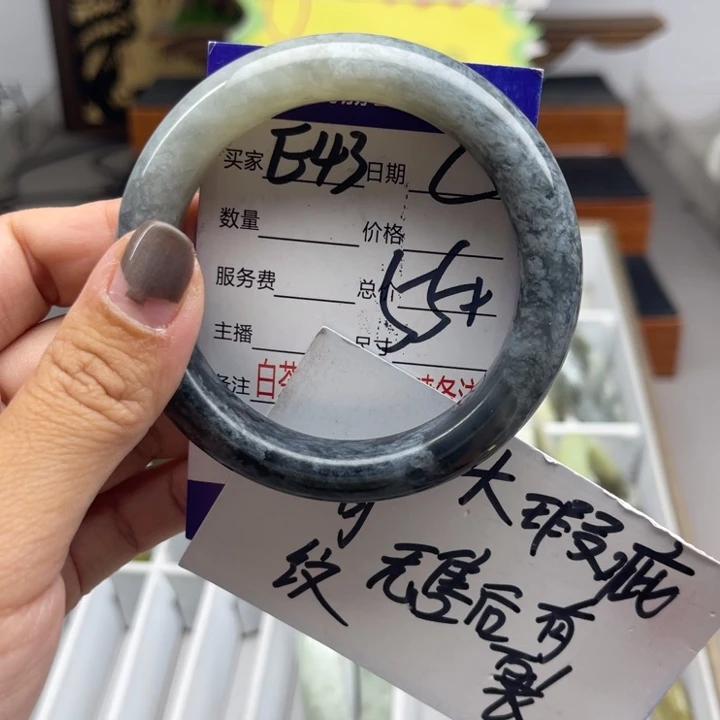 买家 E43 日期
数量 价格
服务费 总价
主播 尺寸
备注 白茶
大瑕疵
纹 无售后有
裂